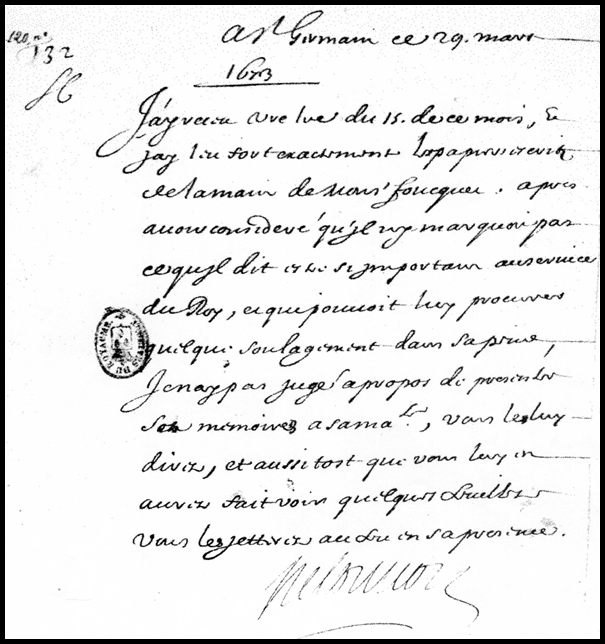 120 n°
132
A St Germain ce 29. mars
1673
J'ay receu vre lre du 15. de ce mois, et
j'ay leu fort exactement les papiers escrits
de la main de Monsr foucquet. apres
auoir consideré qu'jl n'y marquoit pas
ce qu'jl dit estre si jmportant au seruice
du Roy, et qui pouuoit luy procurer
quelque soulagement dans sa peine,
Je n'ay pas jugé a propos de presenter
ses memoires a sa maté, vous le luy
direz, et aussi tost que vous luy en
aurez fait voir quelques feuilles
vous les jetterez au feu en sa presence.